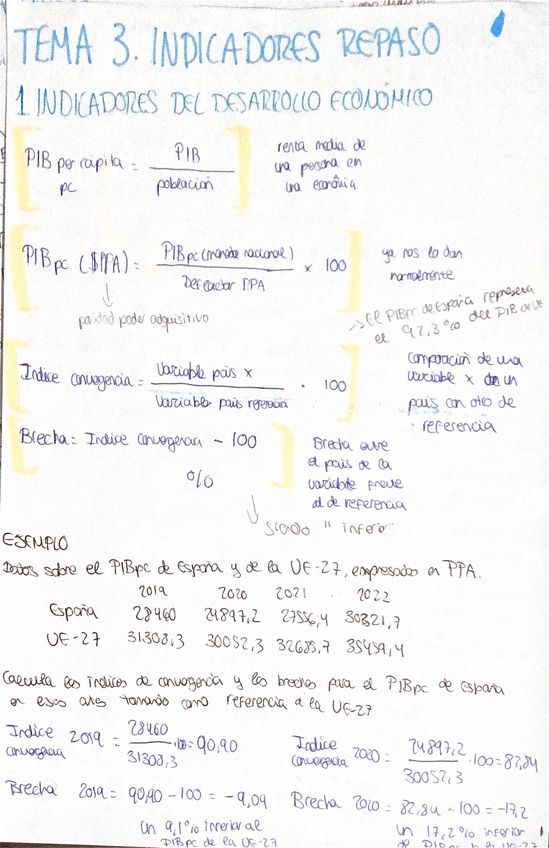 TEMA 3. INDICADORES REPASO
1. INDICADORES DEL DESARROLLO ECONÓMICO
PIB per cápita = PIB / población
pc
renta media de
una persona en
una economía
PIBpc ($PPA) = PIBpc (moneda nacional) / Deflactor PPA × 100
paridad poder adquisitivo
ya nos lo dan
normalmente
→ El PIBpc de España representa
el 92,3% del PIB de UE
Índice convergencia = Variable país x / Variables país referencia · 100
comparación de una
variable x de un
país con otro de
referencia
Brecha = Indice convergencia - 100
%
Brecha entre
el país de la
variable frente
al de referencia
siendo "inferior"
EJEMPLO
Datos sobre el PIBpc de España y de la UE-27, expresados en PPA.
2019 2020 2021 2022
España 28460 24897,2 27556,4 30321,7
UE-27 31308,3 30052,3 32685,7 35459,4
Calcula los índices de convergencia y las brechas para el PIBpc de España
en esos años tomando como referencia a la UE-27
Indice convergencia 2019 = 28460 / 31308,3 · 100 = 90,90
Indice convergencia 2020 = 24897,2 / 30052,3 · 100 = 82,84
Brecha 2019 = 90,90 - 100 = -9,09
Brecha 2020 = 82,84 - 100 = -17,2
un 9,1% inferior al
PIBpc de la UE-27
un 17,2% inferior